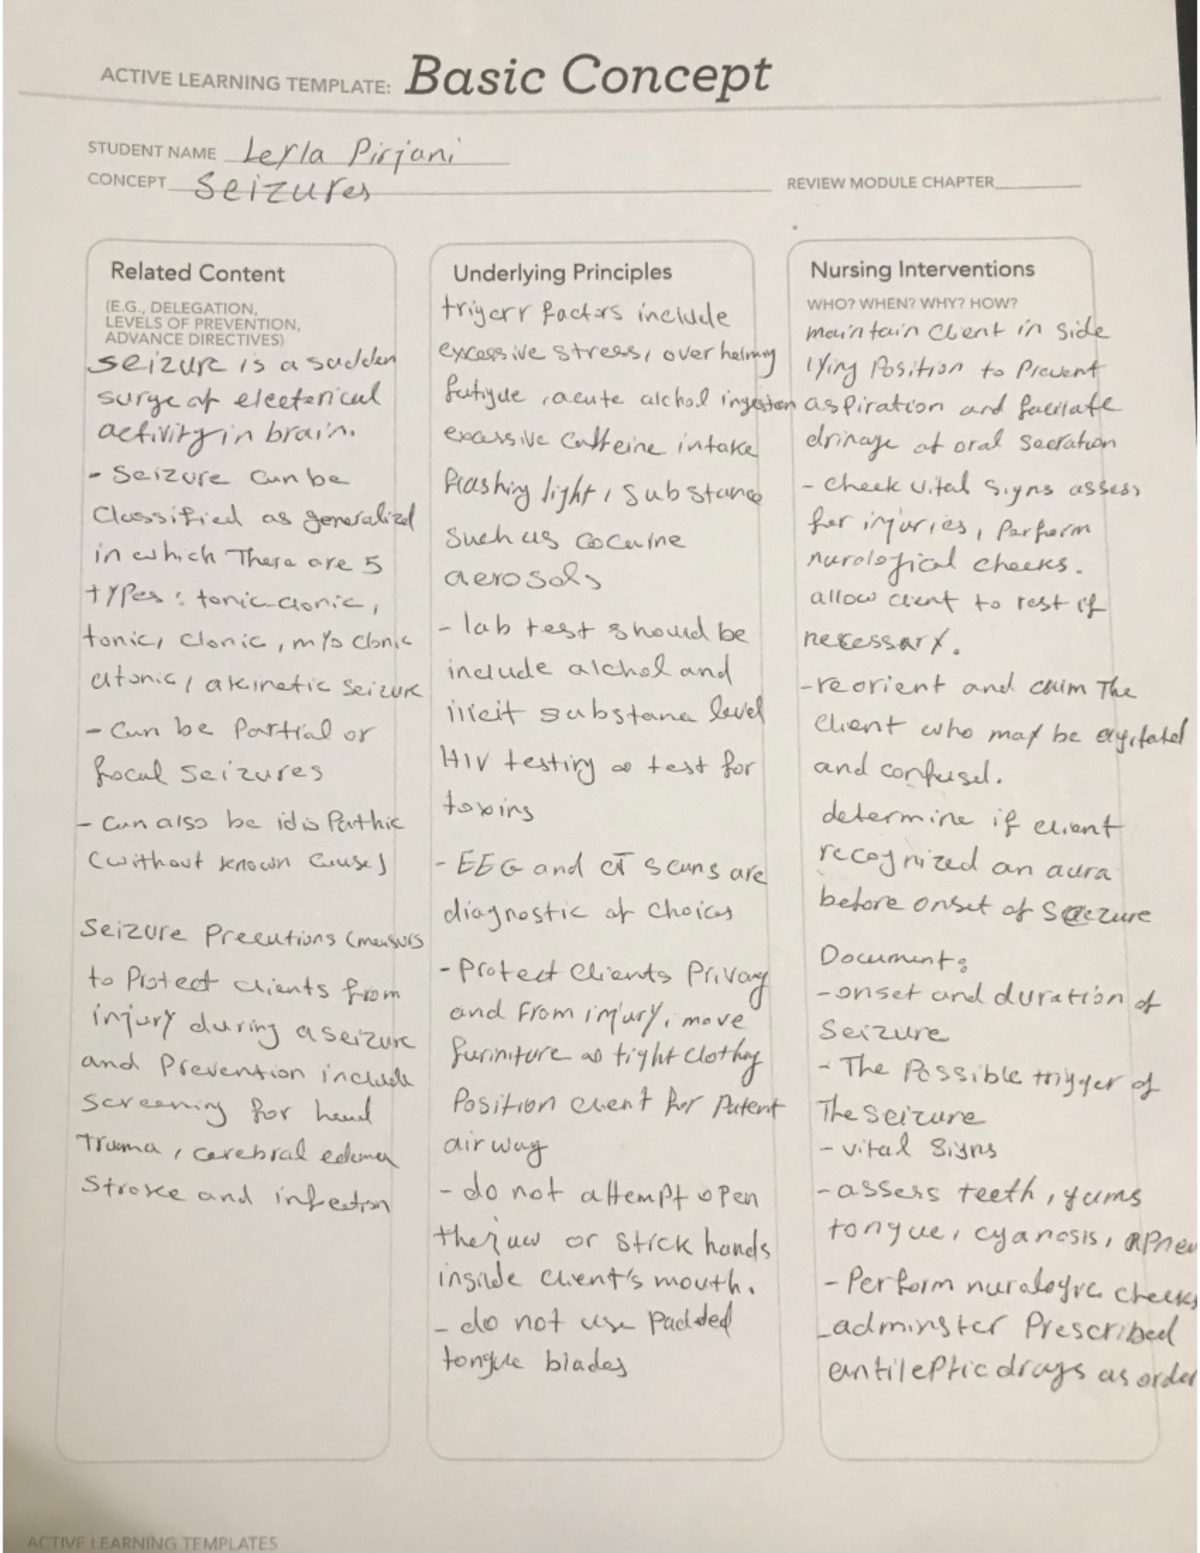 ACTIVE LEARNING TEMPLATE: Basic Concept
STUDENT NAME Leyla Pirjani
CONCEPT Seizures
REVIEW MODULE CHAPTER
Related Content
(E.G., DELEGATION,
LEVELS OF PREVENTION,
ADVANCE DIRECTIVES)
seizure is a sudden
surge of electerical
activity in brain.
- Seizure can be
classified as generalized
in which There are 5
types: tonic-clonic,
tonic, clonic, myo clonic
atonic, akinetic seizure
- Can be Partial or
focal seizures
- Can also be idio Pathic
(without known cause)
Seizure Precutions (measurs
to Protect clients from
injury during a seizure
and Prevention include
screening for head
Truma, cerebral edema
Stroke and infection
Underlying Principles
trigerr factors include
excessive stress, over helming
fatigue, acute alchol ingestion
excassive caffeine intake
flashing light, substance
such as cocaine
aerosols
- lab test should be
include alchol and
illicit substane level
HIV testing & test for
toxins
- EEG and CT scans are
diagnostic of choices
- Protect clients Privacy
and from injury, move
furiniture & tight clothing
Position client for Patent
airway
- do not attempt open
the jaw or stick hands
insilde client's mouth.
- do not use Padded
tongue blades
Nursing Interventions
WHO? WHEN? WHY? HOW?
maintain client in side
lying Position to Prevent
aspiration and facilate
drinage of oral secration
- check vital signs assess
for injuries, Perform
nurological checks.
allow client to rest if
necessary.
- reorient and calm The
client who may be agitated
and confused.
determine if client
recognized an aura
before onset of seizure
Document:
- onset and duration of
seizure
- The Possible trigger of
The seizure
- vital signs
- assess teeth, gums
tongue, cyanosis, apnea
- Perform nurologic checks
- adminster Prescribed
antileptic drugs as order
ACTIVE LEARNING TEMPLATES